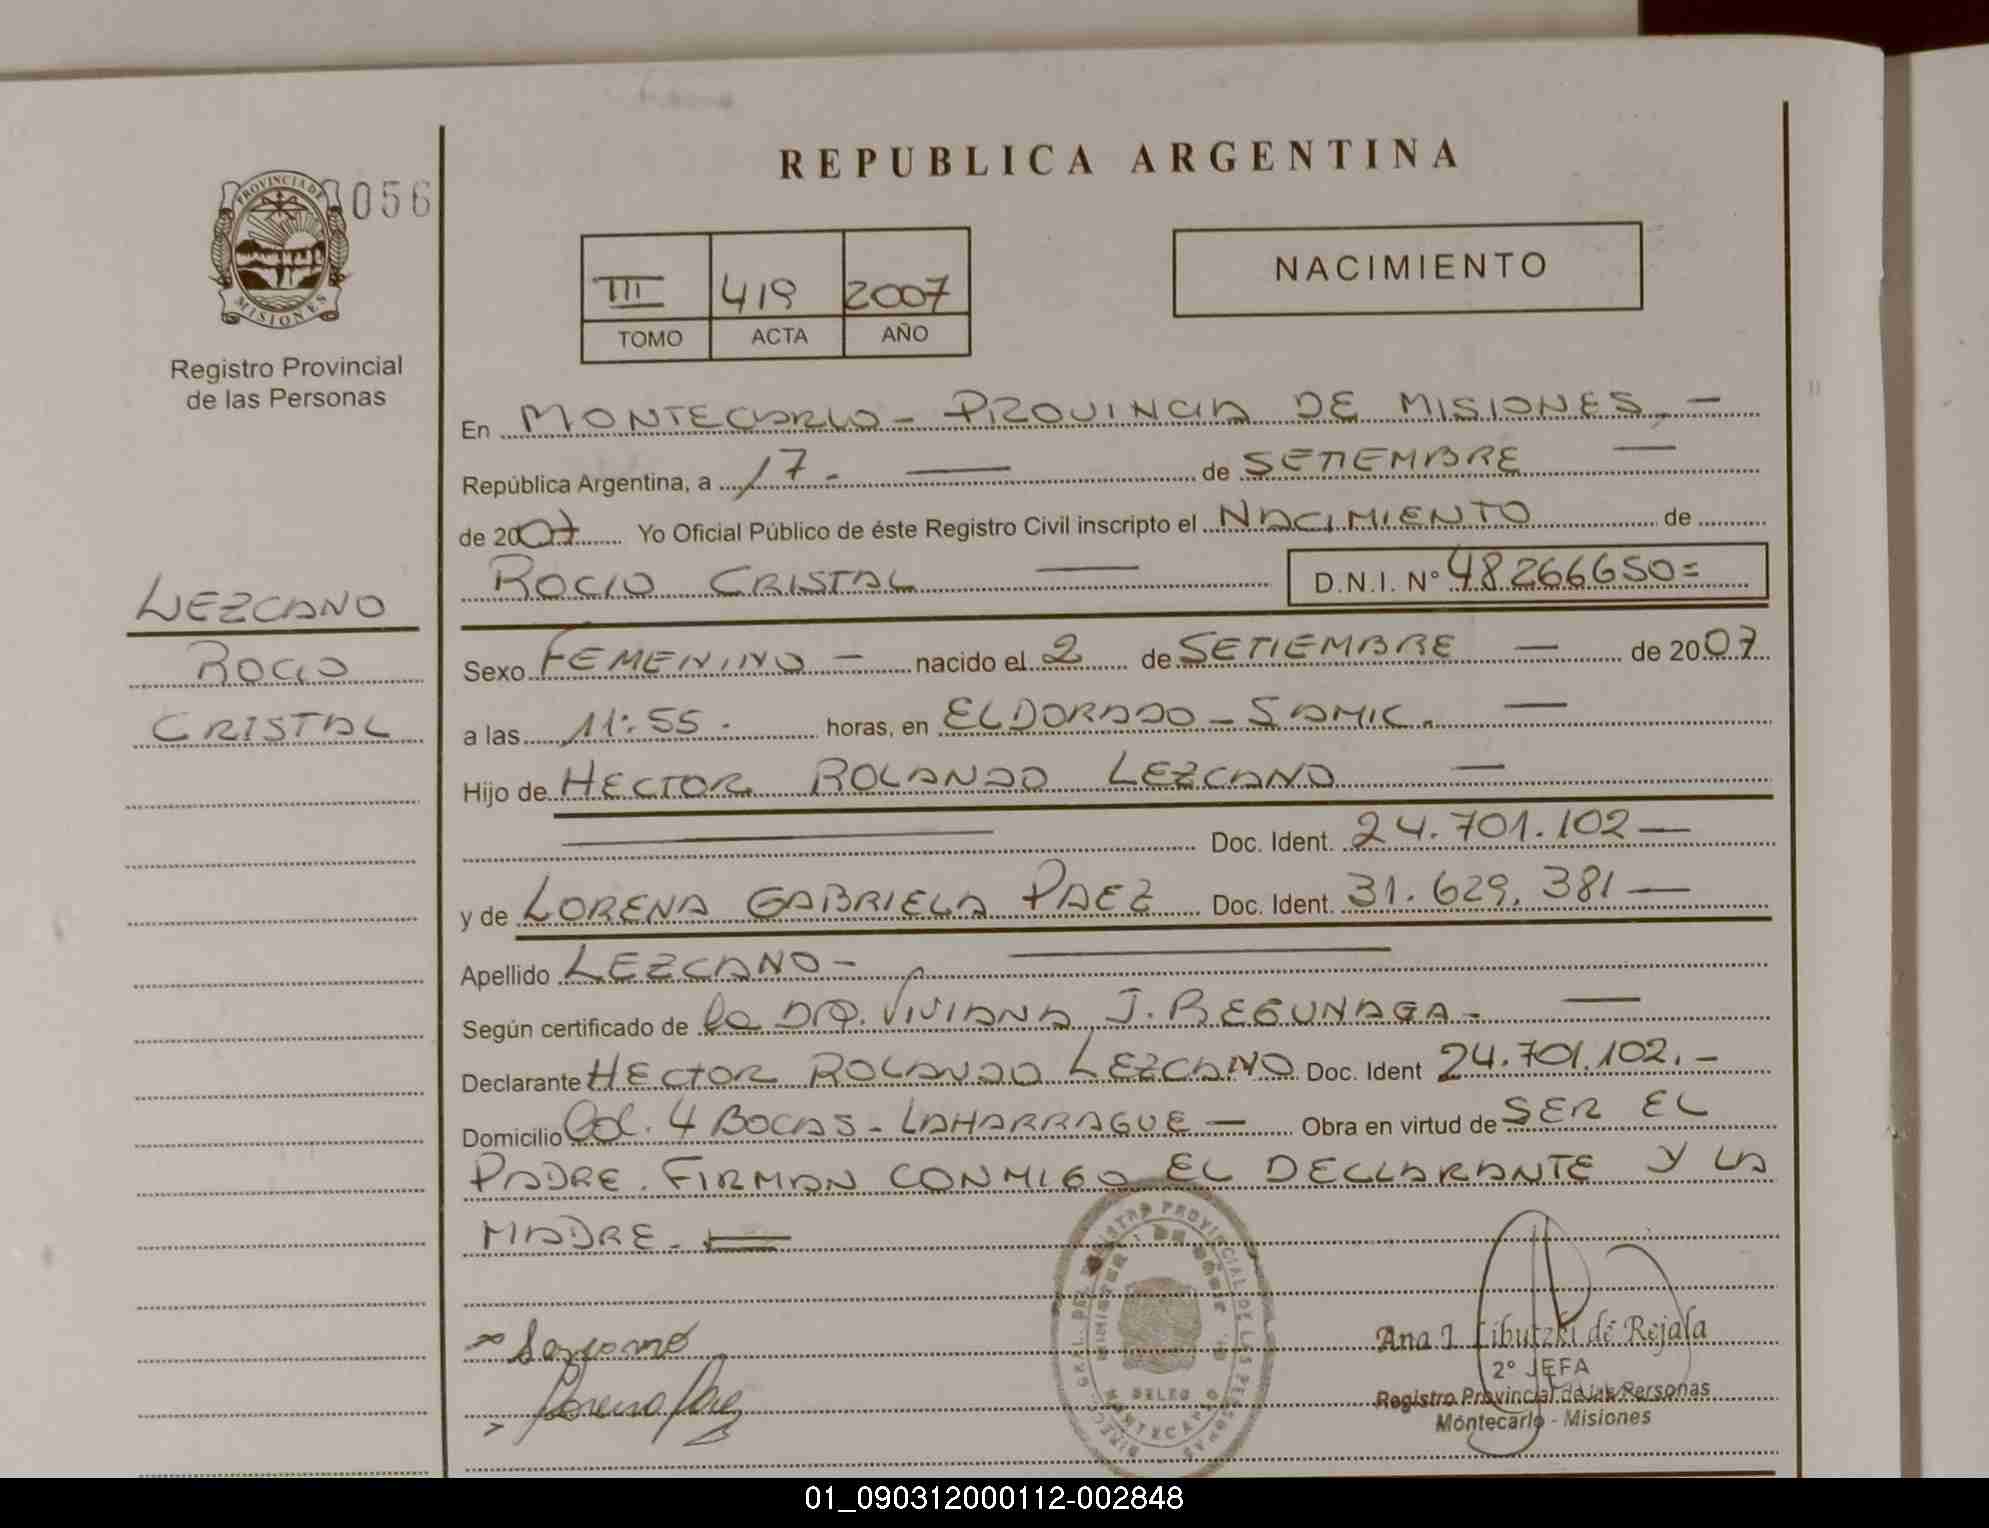 REPUBLICA ARGENTINA
PROVINCIA DE
MISIONES
056
Registro Provincial
de las Personas
III 419 2007
TOMO ACTA AÑO
NACIMIENTO
En MONTECARLO - PROVINCIA DE MISIONES, -
República Argentina, a 17. - de SETIEMBRE -
de 2007 Yo Oficial Público de éste Registro Civil inscripto el NACIMIENTO de
ROCIO CRISTAL - D.N.I. N° 48266650=
LEZCANO
ROCIO
CRISTAL
Sexo FEMENINO - nacido el 2 de SETIEMBRE - de 2007
a las 11:55. horas, en ELDORADO - SAMIC. -
Hijo de HECTOR ROLANDO LEZCANO -
Doc. Ident. 24.701.102 -
y de LORENA GABRIELA PAEZ Doc. Ident. 31.629.381 -
Apellido LEZCANO -
Según certificado de la DRA. VIVIANA J. REGUNAGA -
Declarante HECTOR ROLANDO LEZCANO Doc. Ident 24.701.102. -
Domicilio Col. 4 BOCAS - LAHARRAGUE - Obra en virtud de SER EL
PADRE. FIRMAN CONMIGO EL DECLARANTE Y LA
MADRE -
Lezcano
Lorena Paez
Ana I. Libutzki de Rejala
2° JEFA
Registro Provincial de las Personas
Montecarlo - Misiones
01_090312000112-002848